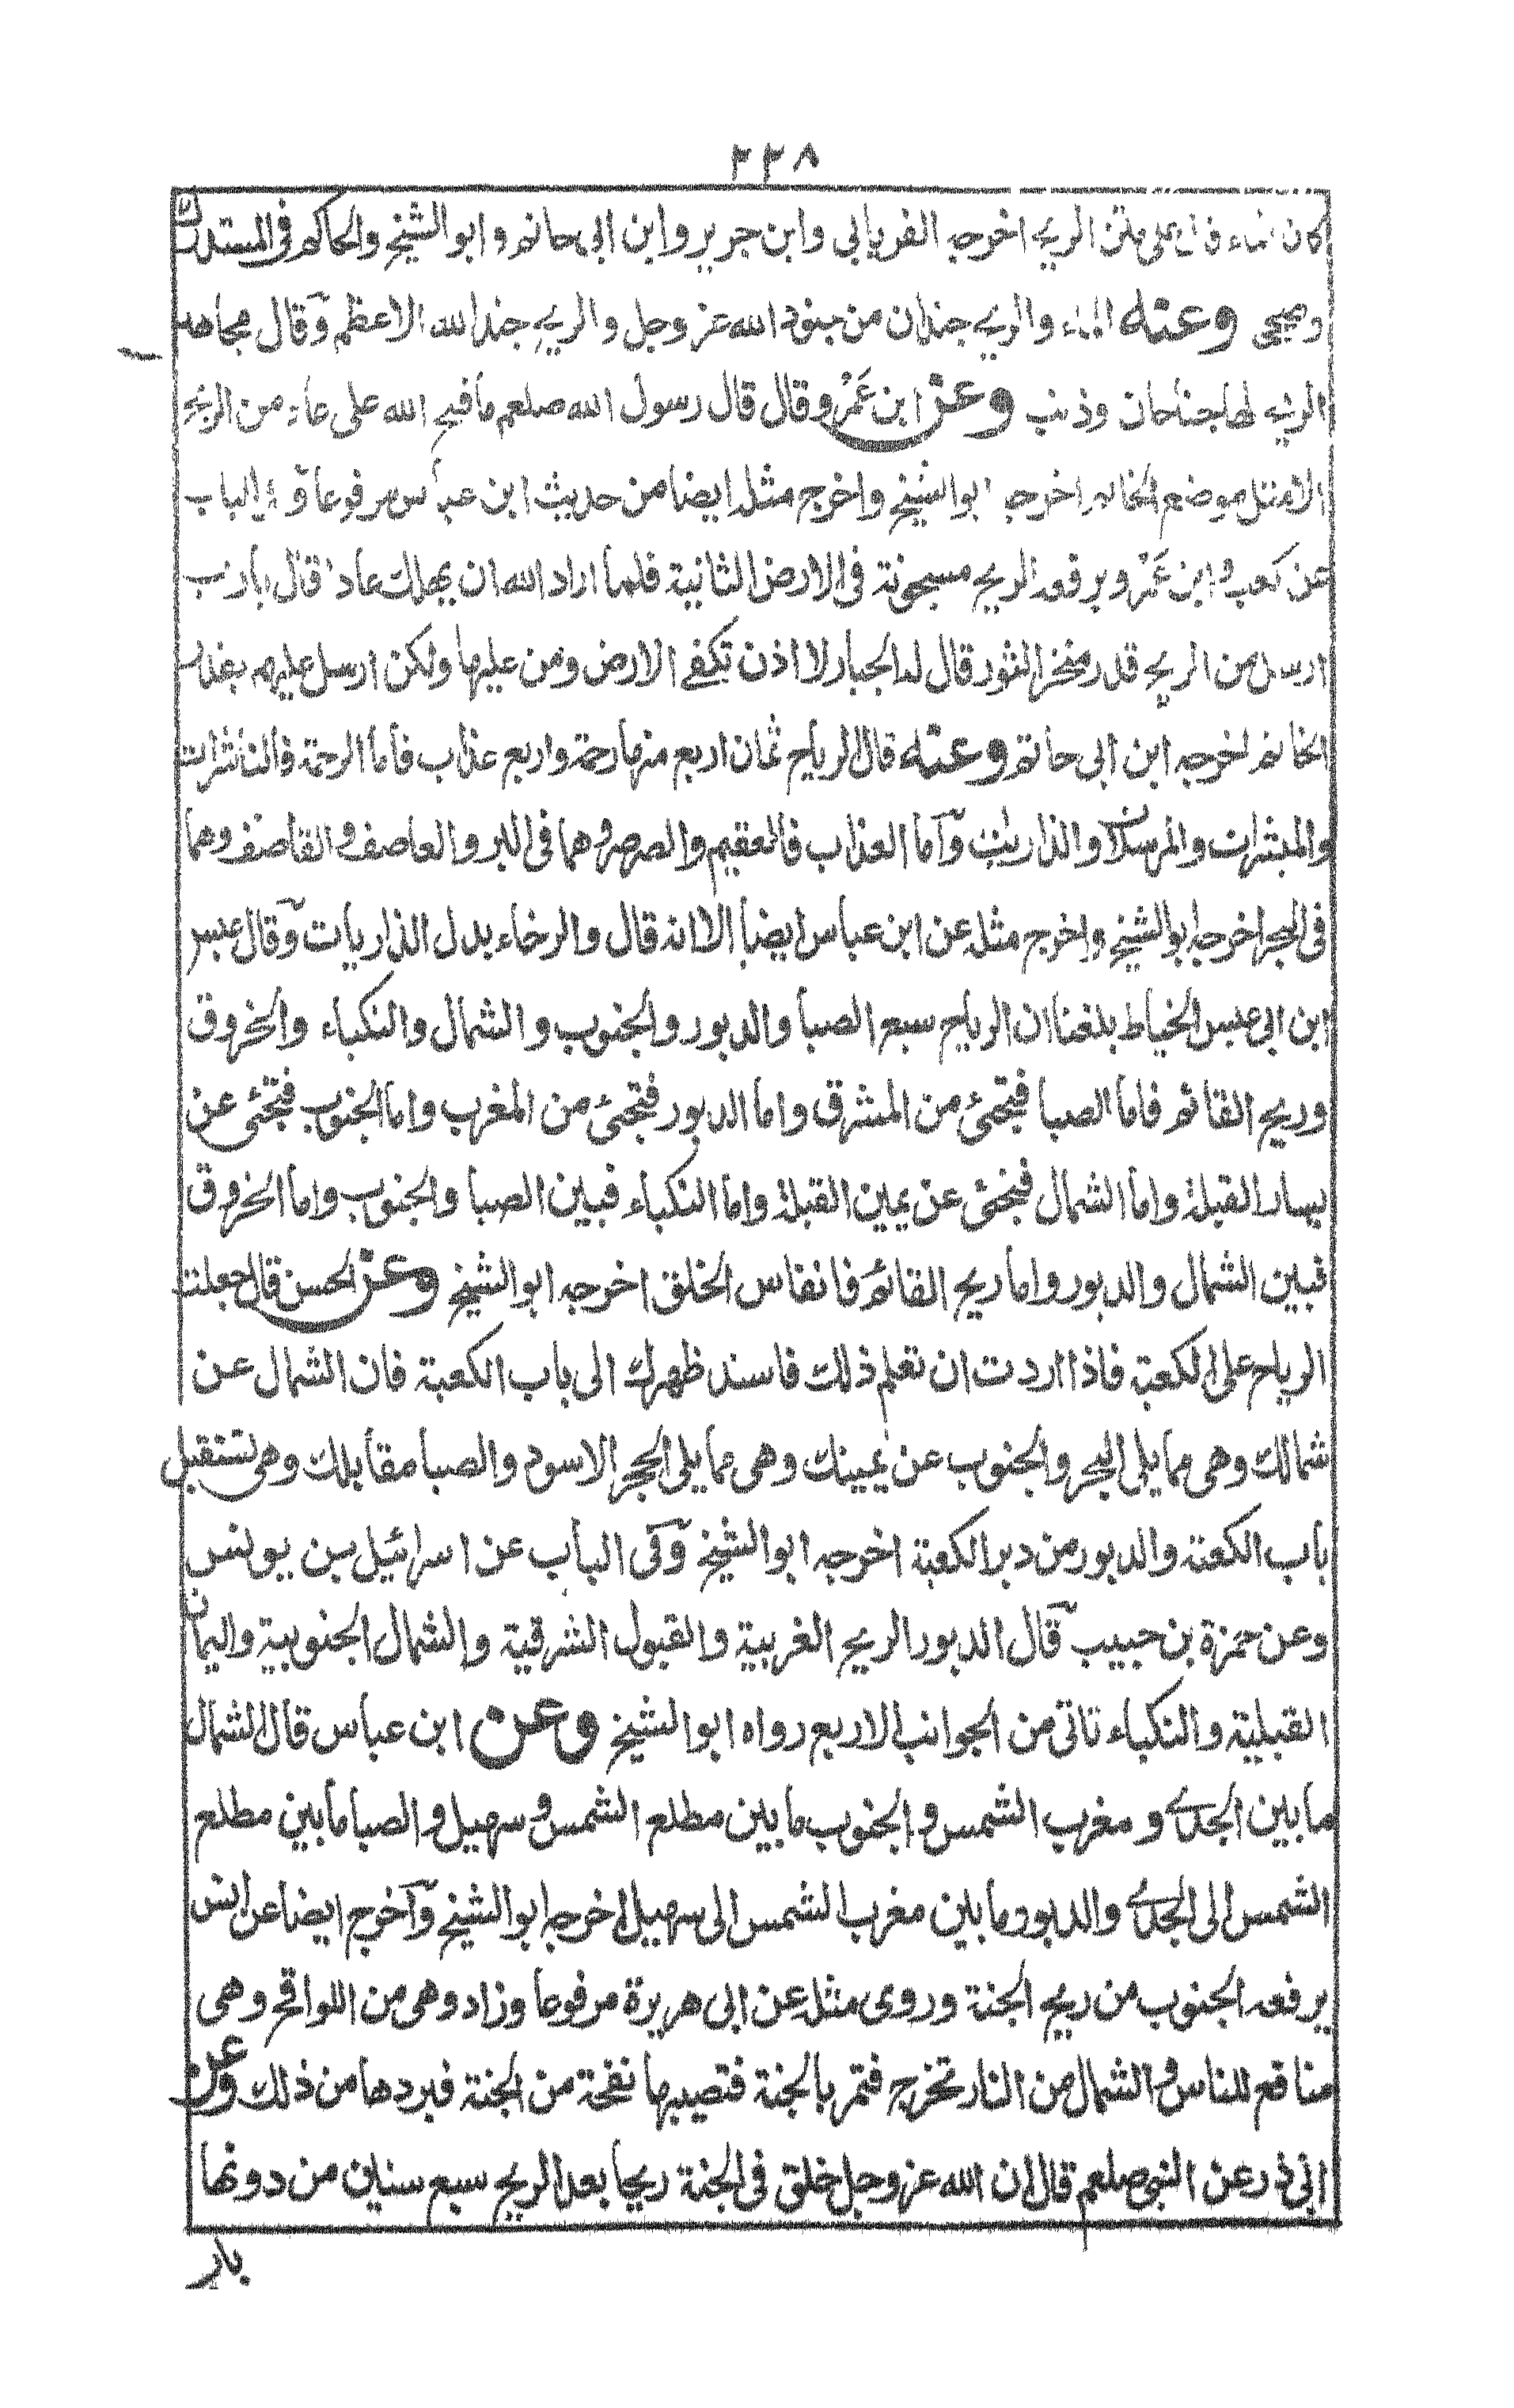 ٢٢٨
كان الماء قال على متن الريح اخرجه الفريابى وابن جرير وابن ابى حاتم وابو الشيخ والحاكم فى المستدرك
وصححه وعنه الماء والريح جندان من جنود الله عز وجل والريح جند الله الاعظم وقال مجاهد
الريح لها جناحان وذنب وعن ابن عمر وقال قال رسول الله صلعم ما فتح الله على عاد من الريح
الا مثل موضع الخاتم اخرجه ابو الشيخ واخرج مثله ايضا من حديث ابن عباس مرفوعا وفى الباب
عن كعب وابن عمر ويرفعه الريح مسجونة فى الارض الثانية فلما اراد الله ان يهلك عادا قال يارب
ارسل من الريح قدر منخر الثور قال له الجبار لا اذن تكفى الارض ومن عليها ولكن ارسل عليهم بقدر
الخاتم اخرجه ابن ابى حاتم وعنه قال الرياح ثمان اربع منها رحمة واربع عذاب فاما الرحمة فالناشرات
والمبشرات والمرسلات والذاريات وآما العذاب فالعقيم والصرصر وهما فى البر والعاصف والقاصف وهما
فى البحر اخرجه ابو الشيخ واخرج مثله عن ابن عباس ايضا الا انه قال والرخاء بدل الذاريات وقال عيسى
ابن ابى عيسى الخياط بلغنا ان الرياح سبع الصبا والدبور والجنوب والشمال والنكباء والخروق
وريح القائم فاما الصبا فتجئ من المشرق واما الدبور فتجئ من المغرب واما الجنوب فتجئ عن
يسار القبلة واما الشمال فتجئ عن يمين القبلة واما النكباء فبين الصبا والجنوب واما الخروق
فبين الشمال والدبور واما ريح القائم فانفاس الخلق اخرجه ابو الشيخ وعن الحسن قال جعلت
الرياح على الكعبة فاذا اردت ان تعلم ذلك فاسند ظهرك الى باب الكعبة فان الشمال عن
شمالك وهى مما يلى الحجر والجنوب عن يمينك وهى مما يلى الحجر الاسود والصبا مقابلك وهى تستقبل
باب الكعبة والدبور من دبر الكعبة اخرجه ابو الشيخ وفى الباب عن اسرائيل بن يونس
وعن حمزة بن حبيب قال الدبور الريح الغربية والقبول الشرقية والشمال الجنوبية واليمان
القبلية والنكباء تاتى من الجوانب الاربع رواه ابو الشيخ وعن ابن عباس قال الشمال
ما بين الجدى ومغرب الشمس والجنوب ما بين مطلع الشمس وسهيل والصبا ما بين مطلع
الشمس الى الجدى والدبور ما بين مغرب الشمس الى سهيل اخرجه ابو الشيخ وآخرج ايضا عن انس
يرفعه الجنوب من ريح الجنة وروى مثله عن ابى هريرة مرفوعا وزاد وهى من اللواقح وهى
منافع للناس والشمال من النار تخرج فتمر بالجنة فتصيبها نفحة من الجنة فبردها من ذلك وعن
ابى ذر عن النبى صلعم قال ان الله عز وجل خلق فى الجنة ريحا بعد الريح سبع سنين من دونها
باب